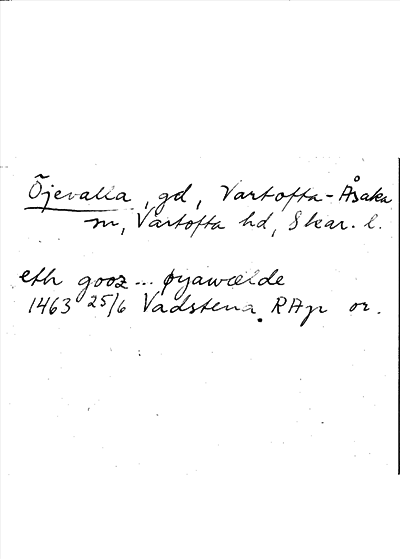 Öjevalla, gd, Vartofta-Åsaka
sn, Vartofta hd, Skar. l.
eth gooz ... øyawælde
1463 25/6 Vadstena. RAp or.